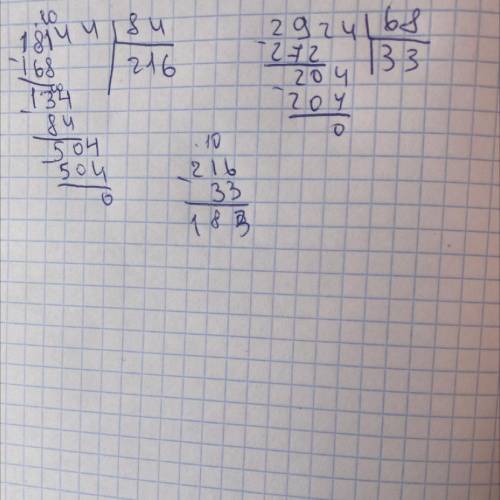 10
18144 | 84
- 168 | 216
10
- 134
84
- 504
504
0
2924 | 68
- 272 | 33
- 204
204
0
. 10
- 216
33
183